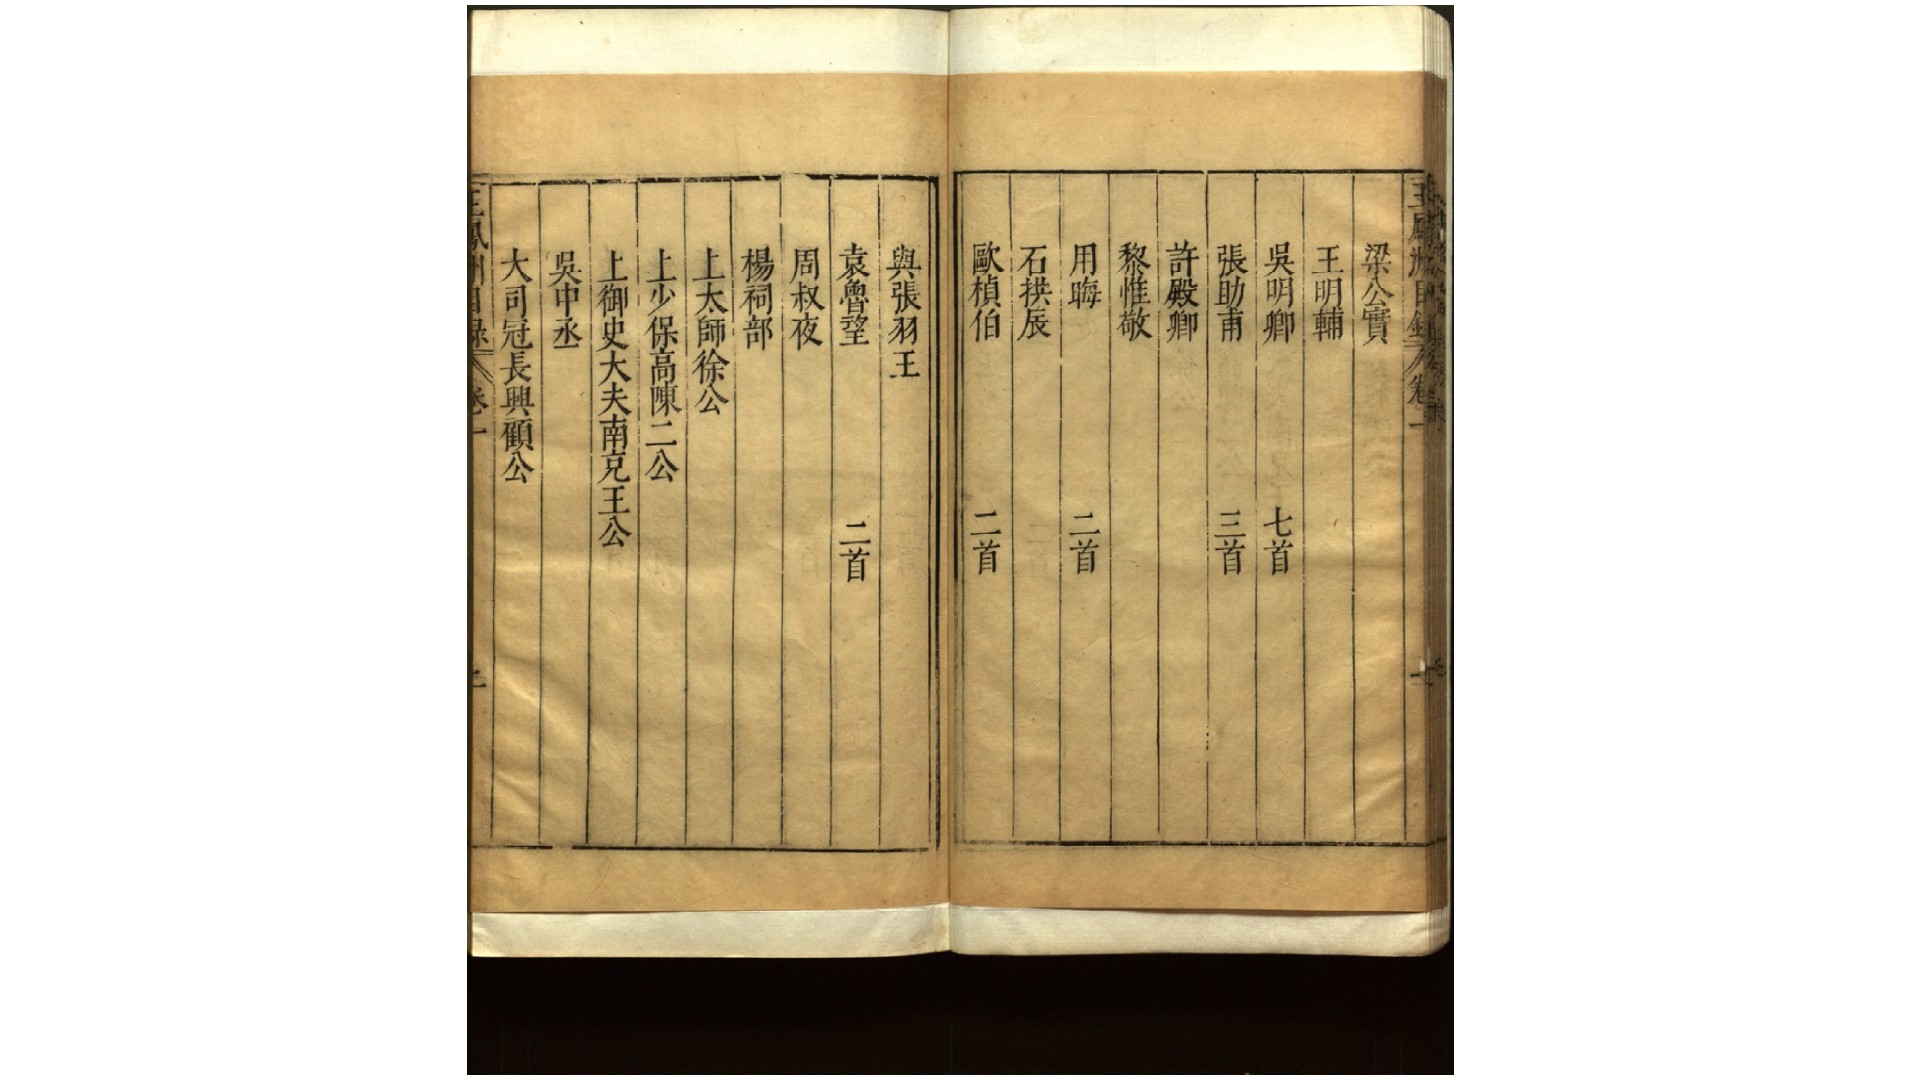 王鳳洲目錄 卷一
梁公實
王明輔
吳明卿 七首
張助甫 三首
許殿卿
黎惟敬
用晦 二首
石拱辰
歐楨伯 二首
與張羽王
袁魯望 二首
周叔夜
楊祠部
上太師徐公
上少保高陳二公
上御史大夫南京王公
吳中丞
大司冠長興顧公
王鳳洲目錄 卷一